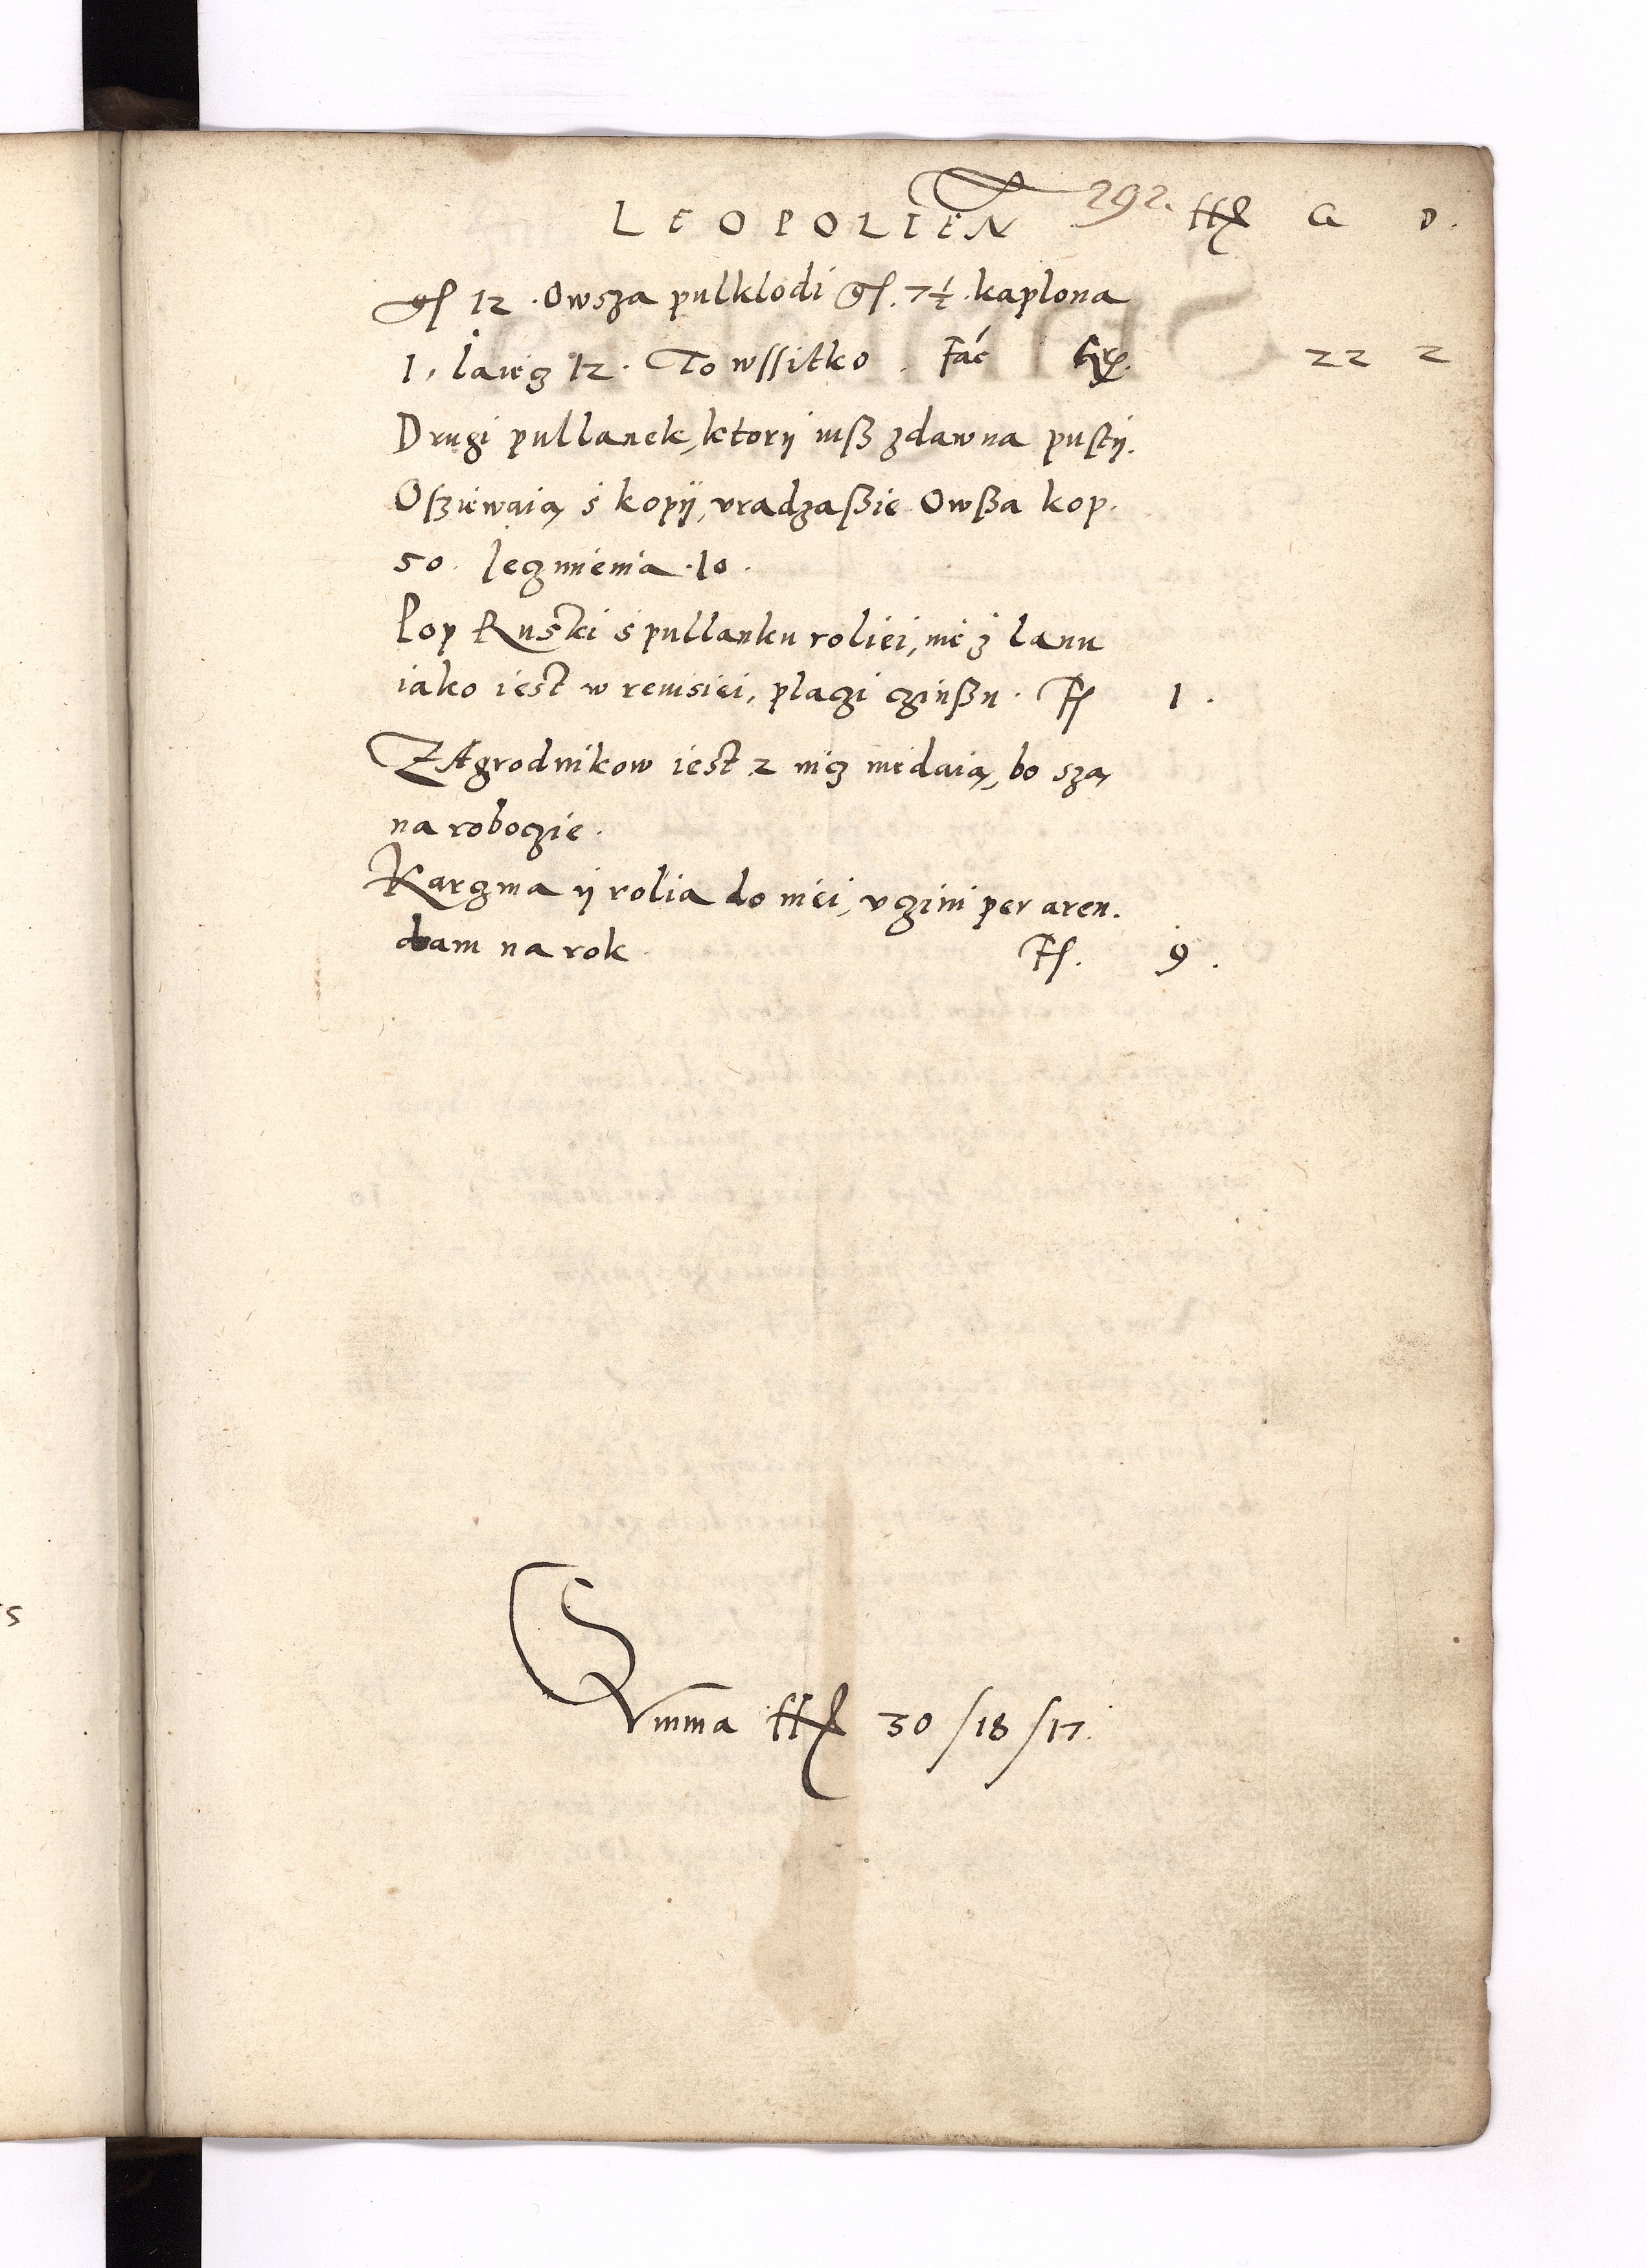 LEOPOLIEN 292. ff G D.
gs 12 . Owsza pulklodi gs. 7½ . kaplona
1, Iaiecz 12. To wssitko . Fac gr. 22 2
Drugi pullanek, ktorij iuß zdawna pustij.
Oßziewaią ś kopij, vradzaßie Owßa kop.
50. Ieczmienia .10.
Pop Ruski ś pullanku roliei, nie z lanu
iako iest w reuisiei, placzi czinßu . ff 1 .
ZAgrodnikow iest 2 nicz niedaią, bo szą
na roboczie.
Karczma ij rolia do niei, vczini per aren.
dam na rok ff. 9 .
Summa ff 30/18/17.
5